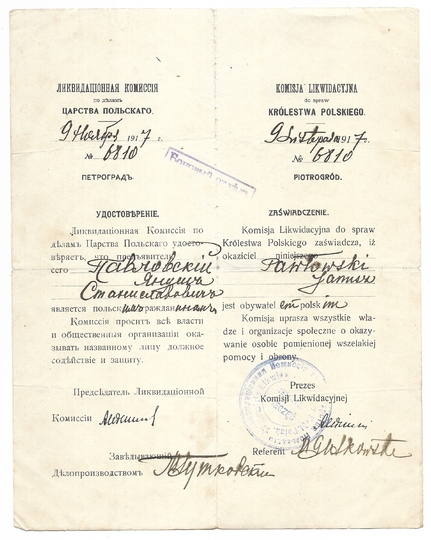 ЛИКВИДАЦІОННАЯ КОМИССІЯ
по дѣламъ
ЦАРСТВА ПОЛЬСКАГО.
9 Ноября 1917 г.
№ 6810
ПЕТРОГРАДЪ.
УДОСТОВѢРЕНІЕ.
Ликвидаціонная Комиссія по
дѣламъ Царства Польскаго удосто-
вѣряетъ, что предъявитель
сего Павловскій
Янушъ
Станиславовичъ
является польскимъ гражданиномъ
Комиссія проситъ всѣ власти
и общественныя организаціи ока-
зывать названному лицу должное
содѣйствіе и защиту.
Предсѣдатель Ликвидаціонной
Комиссіи
Завѣдывающій
Дѣлопроизводствомъ
KOMISJA LIKWIDACYJNA
do spraw
KRÓLESTWA POLSKIEGO.
9 Listopada 1917 r.
№ 6810
PIOTROGRÓD.
ZAŚWIADCZENIE.
Komisja Likwidacyjna do spraw
Królestwa Polskiego zaświadcza, iż
okaziciel niniejszego
Pawłowski
Janusz
jest obywatelem polskim
Komisja uprasza wszystkie wła-
dze i organizacje społeczne o okazy-
wanie osobie pomienionej wszelakiej
pomocy i obrony.
Prezes
Komisji Likwidacyjnej
Referent